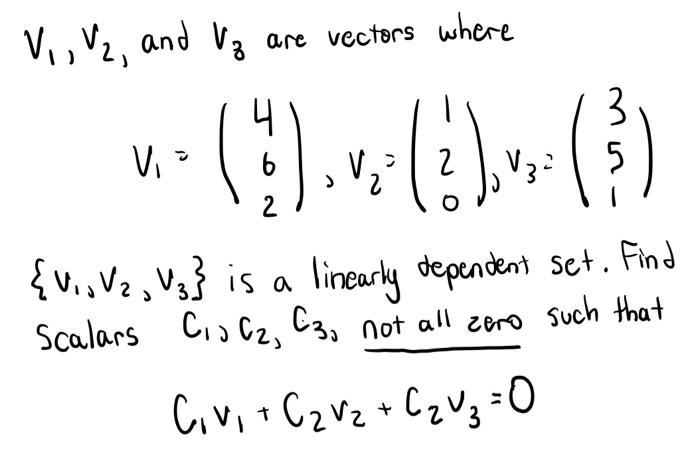 V₁, V₂, and V₃ are vectors where
V₁ = (4 6 2), V₂ = (1 2 0), V₃ = (3 5 1)
{V₁, V₂, V₃} is a linearly dependent set. Find
Scalars C₁, C₂, C₃, not all zero such that
C₁V₁ + C₂V₂ + C₂V₃ = 0